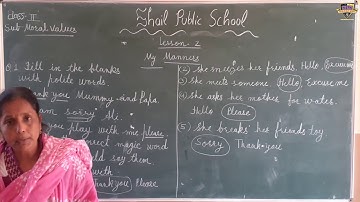 Class- II
Sub Moral Values
Jhail Public School
Lesson- 2
My Manners
Q.1 Fill in the blanks
with polite words.
Thank you Mummy and Papa.
am sorry Ali.
you play with me please
correct magic word
ld say them
with
Thank you Please
(2) She sneezes her friends. Hello, Excuse me
3) She meets someone Hello Excuse me
(4) She asks her mother for water.
Hello Please
(5) She breaks her friends toy
Sorry Thank you